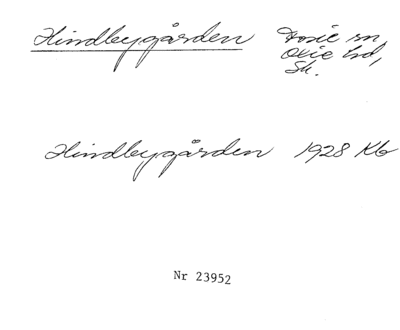 Hindbygården Fosie sn
Oxie hd,
Sk.
Hindbygården 1928 Kb
Nr 23952